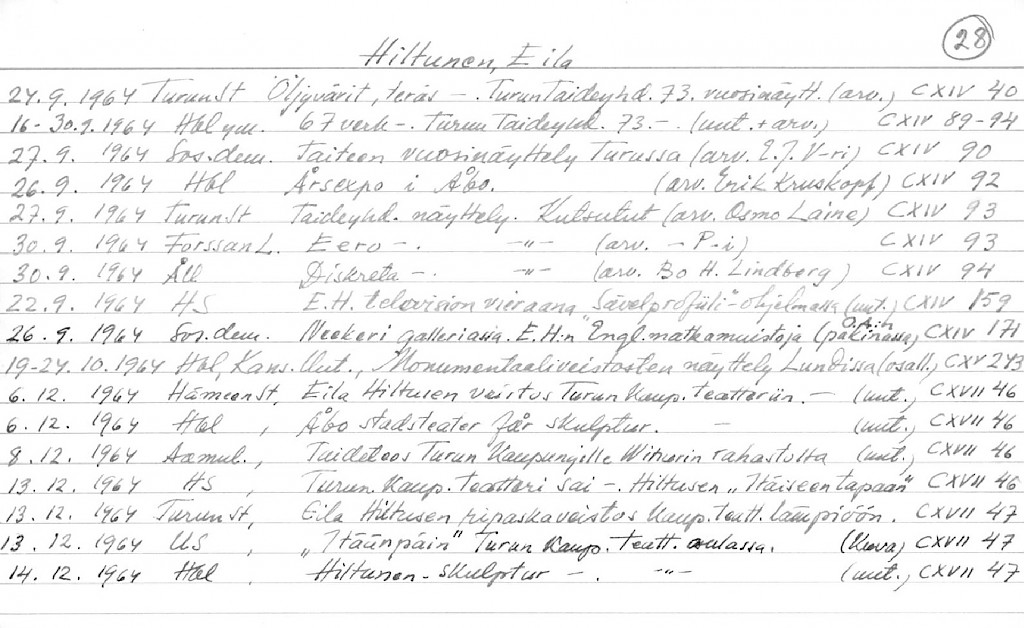 28
Hiltunen, Eila
24.9. 1964 TurunSt Öljyvärit, teräs -. Turun Taideyhd. 73. vuosinäytt. (arv.) CXIV 40
16-30.9.1964 Hbl ym. 67 verk -. Turun Taideyhd. 73. -. (uut. + arv.) CXIV 89-94
27.9. 1964 Sos.dem. Taiteen vuosinäyttely Turussa (arv. E.J. V-ri) CXIV 90
26.9. 1964 Hbl Årsexpo i Åbo. (arv. Erik Kruskopf) CXIV 92
27.9. 1964 TurunSt Taideyhd. näyttely. Kutsutut (arv. Osmo Laine) CXIV 93
30.9. 1964 ForssanL. Eero -. -"- (arv. - P-i) CXIV 93
30.9. 1964 ÅU Diskreta -. -"- (arv. Bo H. Lindberg) CXIV 94
22.9. 1964 HS E.H. television vieraana "Sävelprofiili"-ohjelmassa (uut.) CXIV 159
26.9. 1964 Sos.dem. Neekeri galleriassa. E.H:n Engl. matkamuistoja (O.A:n pakinassa) CXIV 171
19-24.10.1964 Hbl, Kans.Uut., Monumentaaliveistosten näyttely Lundissa (osall.) CXV 243
6.12. 1964 HämeenSt, Eila Hiltusen veistos Turun Kaup. teatteriin. - (uut.) CXVII 46
6.12. 1964 Hbl , Åbo stadsteater får skulptur. - (uut.) CXVII 46
8.12. 1964 Aamul., Taideteos Turun Kaupungille Wihurin rahastolta (uut.) CXVII 46
13.12. 1964 HS , Turun Kaup. teatteri sai -. Hiltusen "Itäiseen tapaan" CXVII 46
13.12. 1964 TurunSt, Eila Hiltusen ripaskaveistos Kaup. teatt. lämpiöön. CXVII 47
13.12. 1964 US , "Itäänpäin" Turun Kaup. teatt. aulassa. (kuva) CXVII 47
14.12. 1964 Hbl , Hiltunen-skulptur -. -"- (uut.) CXVII 47